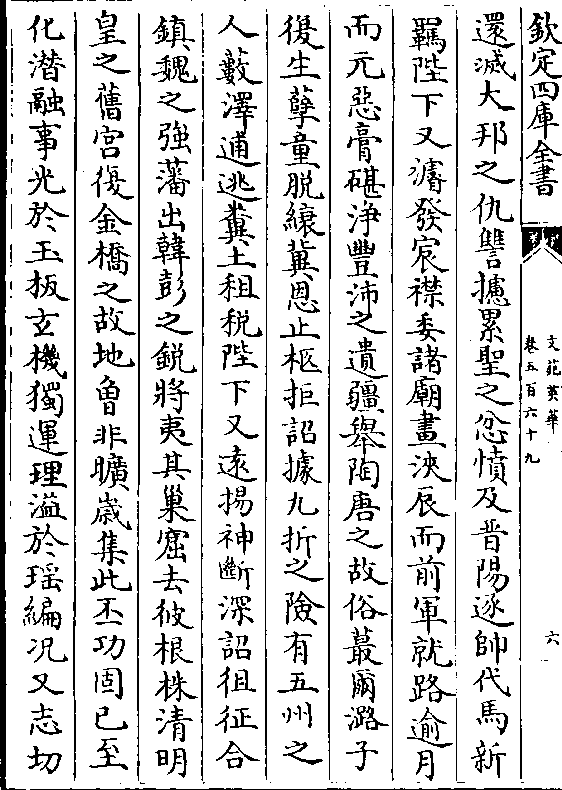 欽定四庫全書
文苑英華
卷五百六十九
六
還滅大邦之仇讐攄累聖之忿憤及晋陽逐帥代馬新
羈陛下又濬發宸襟委諸廟畫浹辰而前軍就路逾月
而元惡膏碪浄豐沛之遺疆舉陶唐之故俗蕞爾潞子
復生孽童脱縗冀恩止柩拒詔據九折之險有五州之
人藪澤逋逃糞土租税陛下又遠揚神斷深詔徂征合
鎮魏之強藩出韓彭之鋭將夷其巢窟去彼根株清明
皇之舊宫復金橋之故地曾非曠歳集此丕功固已至
化潛融事光於玉板玄機獨運理溢於瑶編况又志切